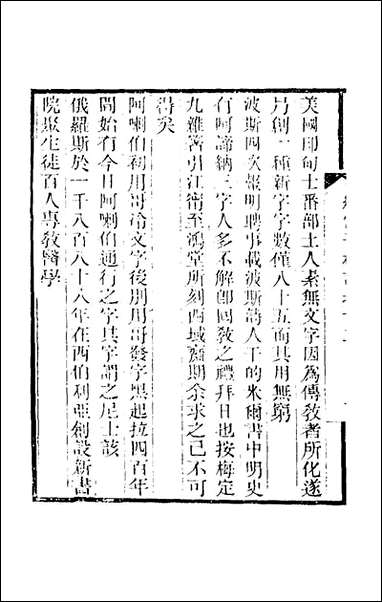 美國印甸士番部土人素無文字因為傳教者所化遂
乃創一種新字字數僅八十五而其用無窮
波斯國次報明聘事載波斯詩人干的米爾書中明史
有阿諦納三字人多不解即回教之禮拜日也按梅定
九雜著引江甯至鴻堂所刻西域齋期余求之已不可
得矣
阿喇伯初用哥洽文字後別用哥發字黑起拉四百年
間始有今日阿喇伯通行之字其字謂之尼士該
俄羅斯於一千八百八十八年在西伯利亞創設新書
院聚生徒百人專教醫學